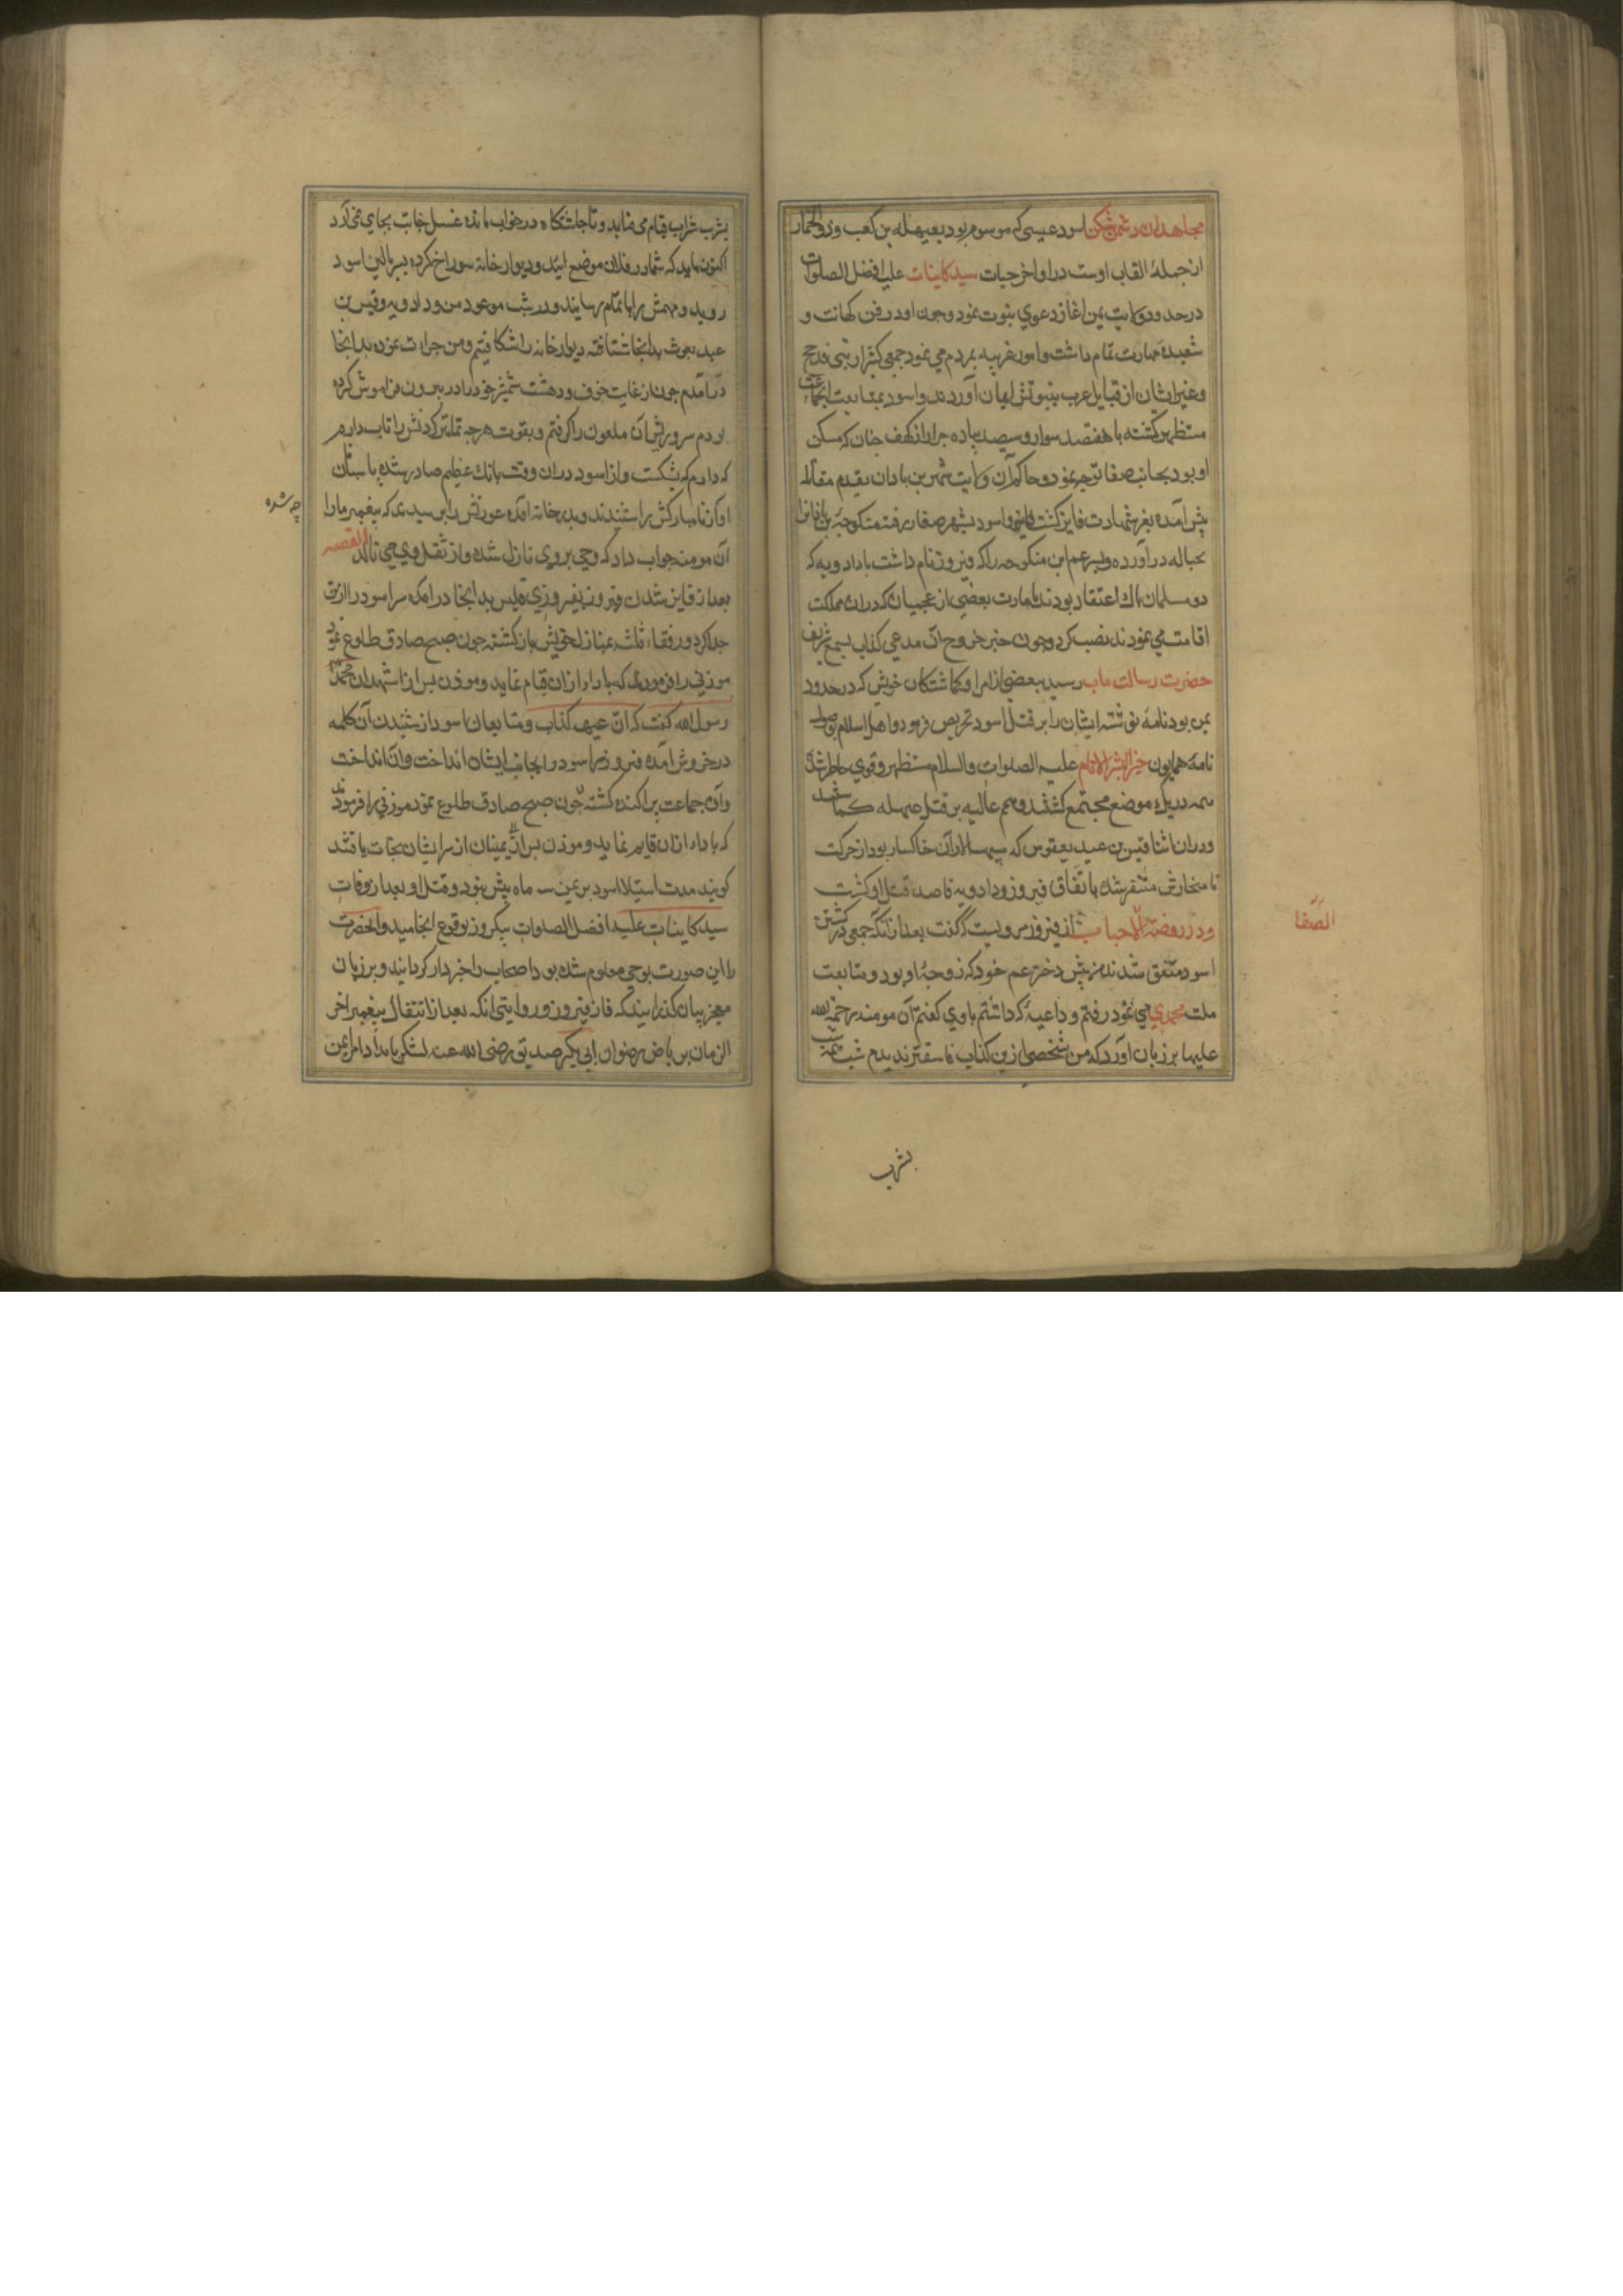 مجاهدان دشمن شکن اسود عیسی که موسوم بود بعیهله بن کعب و ذو الخمار
از جمله القاب اوست در اواخر حیات سید کاینات علیه افضل الصلوات
در حدود ولایت یمن اغاز دعوی نبوت نمود و چون او در فن کهانت و
شعبده مهارت تمام داشت و امور غریبه بمردم می نمود جمعی کثیر از بنی مذحج
و غیر ایشان از قبایل عرب بنبوتش ایمان آوردند و اسود بمتابعت ایجماعت
مستظهر کشته با هفتصد سوار و سیصد پیاده جرار از کهف خبان که مسکن
او بود بجانب صفا توجه نمود و حاکم آن ولایت شهر بن بادان بقدم مقاتله
پیش آمده بعز شهادت فایز کشت و اسود بشهر صفا رفته منکوحه بن بادانرا
بحباله در آورده و پسر عم این منکوحه را که فیروز نام داشت با دادویه که
دو مسلمان پاک اعتقاد بودند بامارت بعضی از عجمیان که در ان مملکت
اقامت می نمودند نصب کرد و چون خبر خروج آن مدعی کذاب بسمع شریف
حضرت رسالت ماب رسید ببعضی از امرا و کماشتکان خویش که در حدود
یمن بود نامه نوشته ایشان را بر قتل اسود تحریص فرمود و اهل اسلام بوصول
نامه همایون خیر البشر الانام علیه الصلوات والسلام مستظهر و قوی خاطر شده
همه در یک موضع مجتمع کشتند و همم عالیه بر قتل عیهله کماشتند
و در ان اثنا قیس بن عبد یغوث که سپهسالار آن خاکسار بود از حرکت
ناهنجارش متنفر شده باتفاق فیروز و دادویه قاصد قتل او کشت
و در روضة الاحباب از فیروز مرویست که گفت بعد از انکه جمعی در کشتن
اسود متفق شدند من پیش دختر عم خود که زوجه او بود و متابعت
ملت محمدی می نمود رفتم و داعیه که داشتم باوی گفتم آن مومنه رحمة الله
علیها بر زبان آورد که من شخصی ازین کذاب فاسقتر ندیدم شب همه شب
بشرب
الصفا
بشرب شراب قیام می نماید و تا چاشتگاه در خواب مانده غسل جنابت بجای نمی آرد
اکنون باید که شما در فلان موضع ایید و دیوار خانه سوراخ کرده بسر بالین اسود
روید و مهمش را باتمام رسانید و در شب موعود من و دادویه و قیس بن
عبد یغوث بدانجا شتافته دیوار خانه را شکافتیم و من جراءت نموده بدانجا
در آمدم چون از غایت خوف و دهشت شمشیر خود را در بیرون فراموش کرده
بودم سر و ریش آن ملعون را گرفتم و بقوت هرچه تمامتر گردنش را تاب دادم
که دادم که بشکست و از اسود در ان وقت بانک عظیم صادر شده پاسبانان
آواز نامبارکش را شنیدند و بدر خانه آمده عورتش را پرسیدند که پیغمبر ما را
چه شده
آن مومنه جواب داد که وحی بروی نازل شده و از ثقل وحی می نالد القصه
بعد از فایز شدن فیروز بفیروزی قیس بدانجا در امده سر اسود را از تن
جدا کرد و رفقاء ثلث بمنازل خویش باز گشته چون صبح صادق طلوع نمود
موذنی را فرمودند که باداء اذان قیام نماید و موذن پس از اشهد ان محمدا
رسول الله گفت که ان عیهله کذاب و متابعان اسود از شنیدن آن کلمه
در خروش آمده فیروز سر اسود را بجانب ایشان انداخت و آن انداخت
و آن جماعت پراکنده کشته چون صبح صادق طلوع نمود موذنی را فرمودند
که باداء اذان قایم نماید و موذن پس از یمنیان از سر ایشان نجات یافتند
گویند مدت استیلا اسود بر یمن سه ماه بیش نبود و قتل او بعد از وفات
سید کاینات علیه افضل الصلوات بیکروز بوقوع انجامید و انحضرت
را این صورت بوحی معلوم شده بود اصحاب را خبردار گردانید و بر زبان
معجز بیان گذرانید که فاز فیروز و روایتی انکه بعد از انتقال پیغمبر اخر
الزمان بریاض رضوان ابی بکر صدیق رضی الله عنه لشکر بامداد امرا یمن